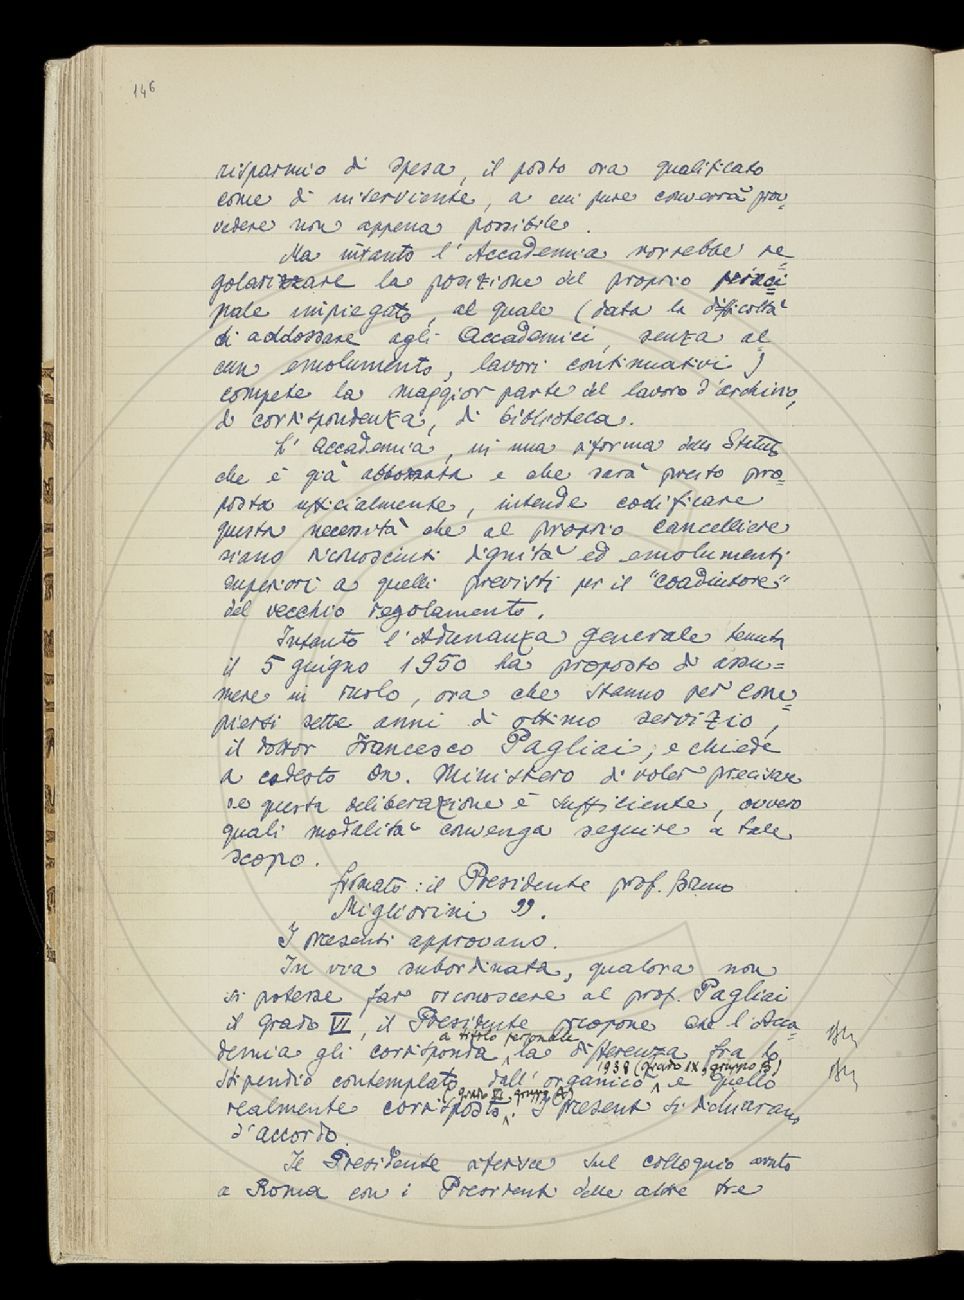 146
risparmio di spesa, il posto ora qualificato
come di inserviente, a cui pure converrà prov-
vedere non appena possibile.
Ma intanto l'Accademia vorrebbe re=
golarizzare la posizione del proprio princi=
pale impiegato, al quale (data la difficoltà
di addossare agli Accademici, senza al=
cun emolumento, lavori continuativi)
compete la maggior parte del lavoro d'archivio,
di corrispondenza, di biblioteca.
L'Accademia, in una riforma dello Statuto
che è già abbozzata e che sarà presto pro=
posta ufficialmente, intende codificare
questa necessità che al proprio cancelliere
siano riconosciuti dignità ed emolumenti
superiori a quelli previsti per il "coadiutore"
del vecchio regolamento.
Intanto l'Adunanza generale tenuta
il 5 giugno 1950 ha proposto di assu=
mere in ruolo, ora che stanno per com=
piersi sette anni di ottimo servizio,
il dottor Francesco Pagliai; e chiede
a codesto On. Ministero di voler precisare
se questa deliberazione è sufficiente, ovvero
quali modalità convenga seguire a tale
scopo.
firmato: il Presidente prof. Bruno
Migliorini".
I presenti approvano.
In via subordinata, qualora non
si potesse far riconoscere al prof. Pagliai
il grado VI, il Presidente propone che l'Acca=
a titolo personale
demia gli corrisponda la differenza fra lo
1938 (grado IX, gruppo B)
stipendio contemplato dall'organico e quello
(grado VI gruppo A)
realmente corrisposto. I presenti si dichiarano
d'accordo.
Il Presidente riferisce sul colloquio avuto
a Roma con i Presidenti delle altre tre